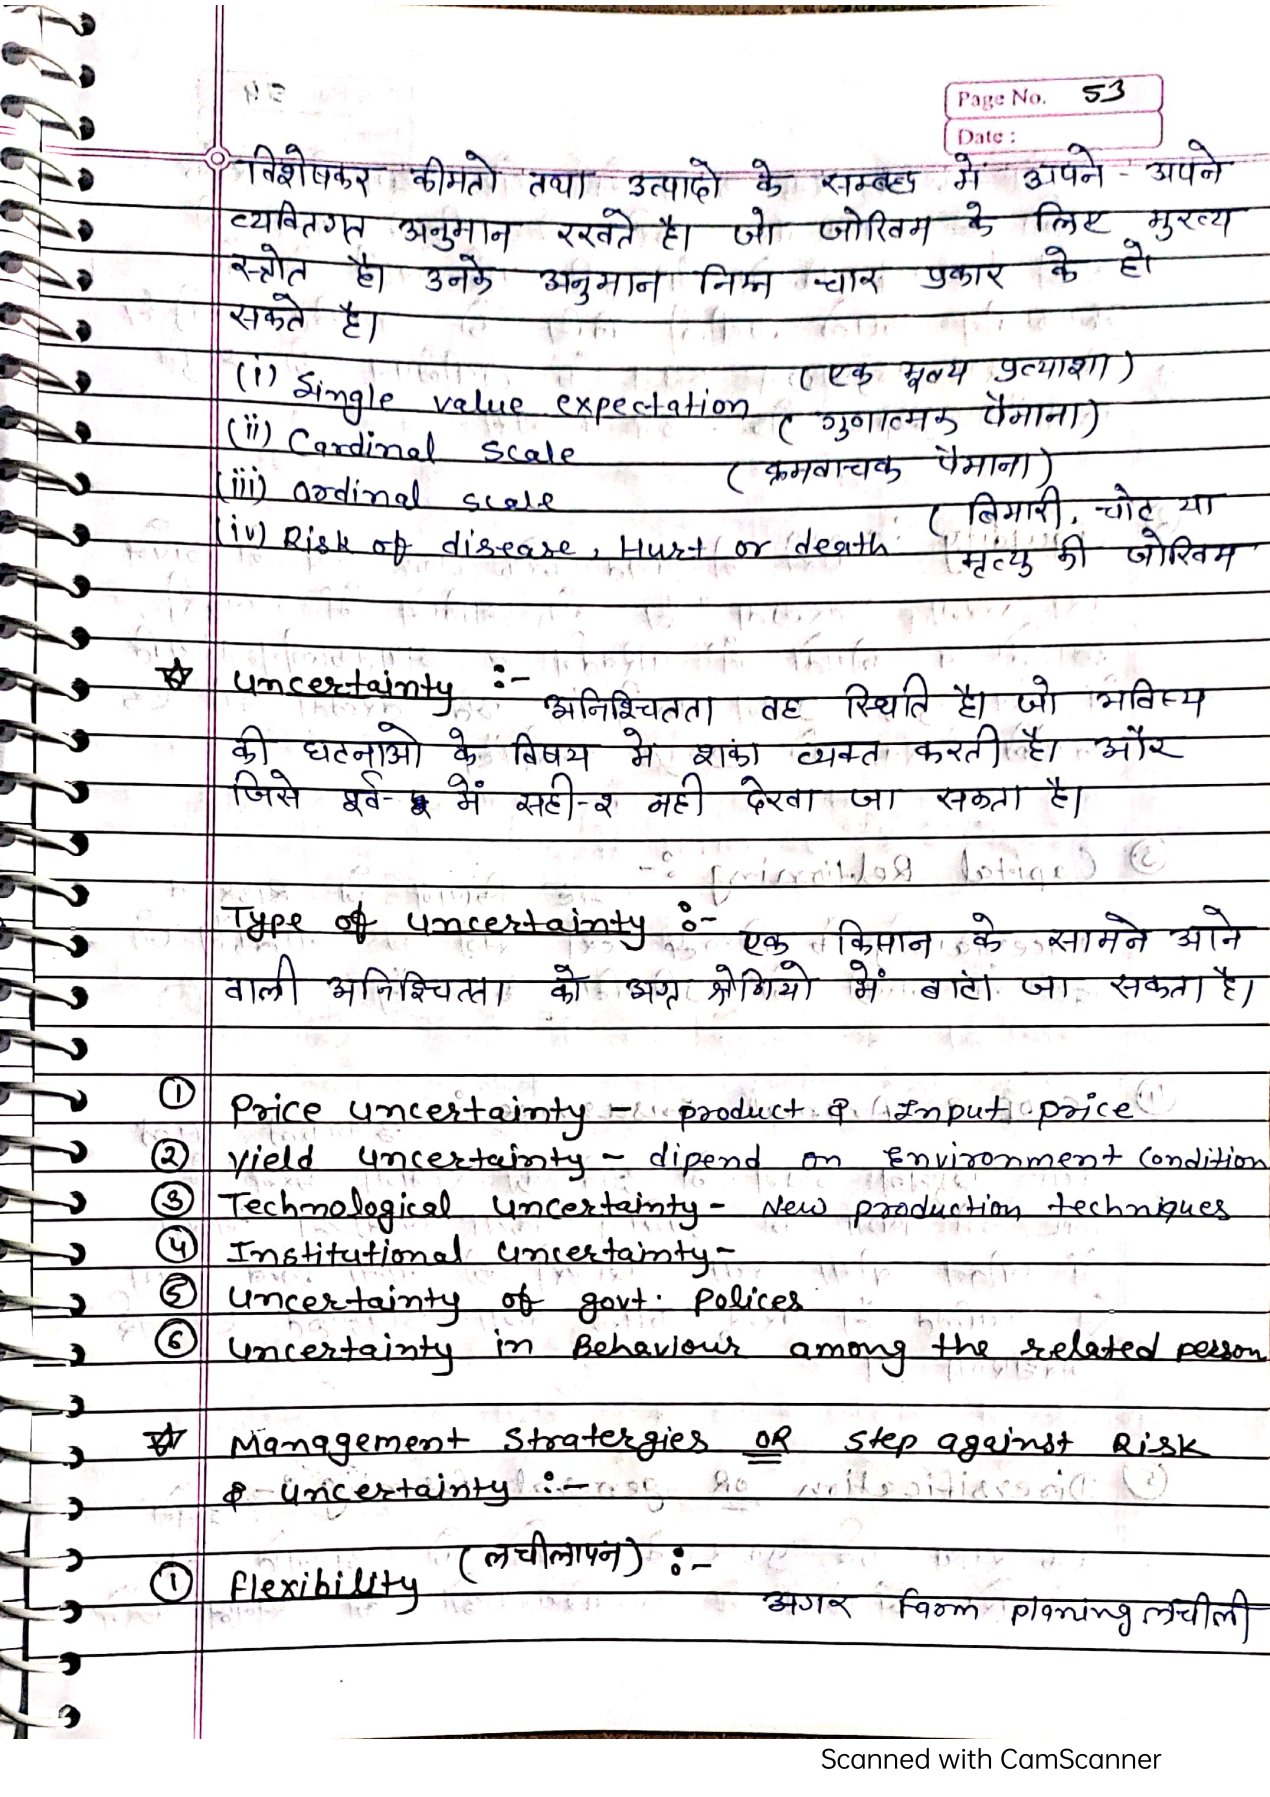 Page No. 53
Date :
विशेषकर कीमतो तथा उत्पादो के सम्बन्ध में अपने - अपने
व्यक्तिगत अनुमान रखते है। जो जोखिम के लिए मुख्य
स्त्रोत है। उनके अनुमान निम्न चार प्रकार के हो
सकते है।
(i) Single value expectation (एक मूल्य प्रत्याशा)
(ii) Cardinal scale (गुणात्मक पैमाना)
(iii) ordinal scale (क्रमवाचक पैमाना)
(iv) Risk of disease, Hurt or death (बिमारी, चोट या
मृत्यु की जोखिम
☆ uncertainty :- अनिश्चितता वह स्थिति है। जो भविष्य
की घटनाओ के विषय मे शंका व्यक्त करती है। और
जिसे पूर्व- में सही-२ नही देखा जा सकता है।
Type of uncertainty :- एक किसान के सामने आने
वाली अनिश्चितता को अग्र श्रेणियो में बाटा जा सकता है।
① Price uncertainty - product & Input price
② Yield uncertainty - dipend on Environment condition
③ Technological uncertainty - New production techniques
④ Institutional uncertainty -
⑤ uncertainty of govt. polices
⑥ uncertainty in Behaviour among the related person
☆ Management Stratergies OR step against Risk
& uncertainty :-
① flexibility (लचीलापन) :-
अगर farm planing लचीली
Scanned with CamScanner